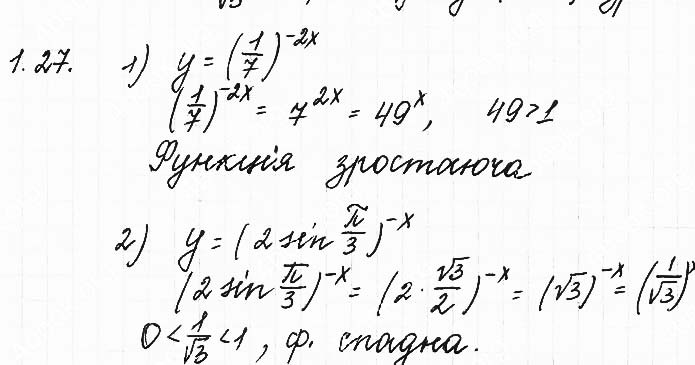 1.27. 1) y = (1/7)^{-2x}
(1/7)^{-2x} = 7^{2x} = 49^x, 49>1
Функція зростаюча
2) y = (2 sin π/3)^{-x}
(2 sin π/3)^{-x} = (2 · √3/2)^{-x} = (√3)^{-x} = (1/√3)
0 < 1/√3 < 1, ф. спадна.